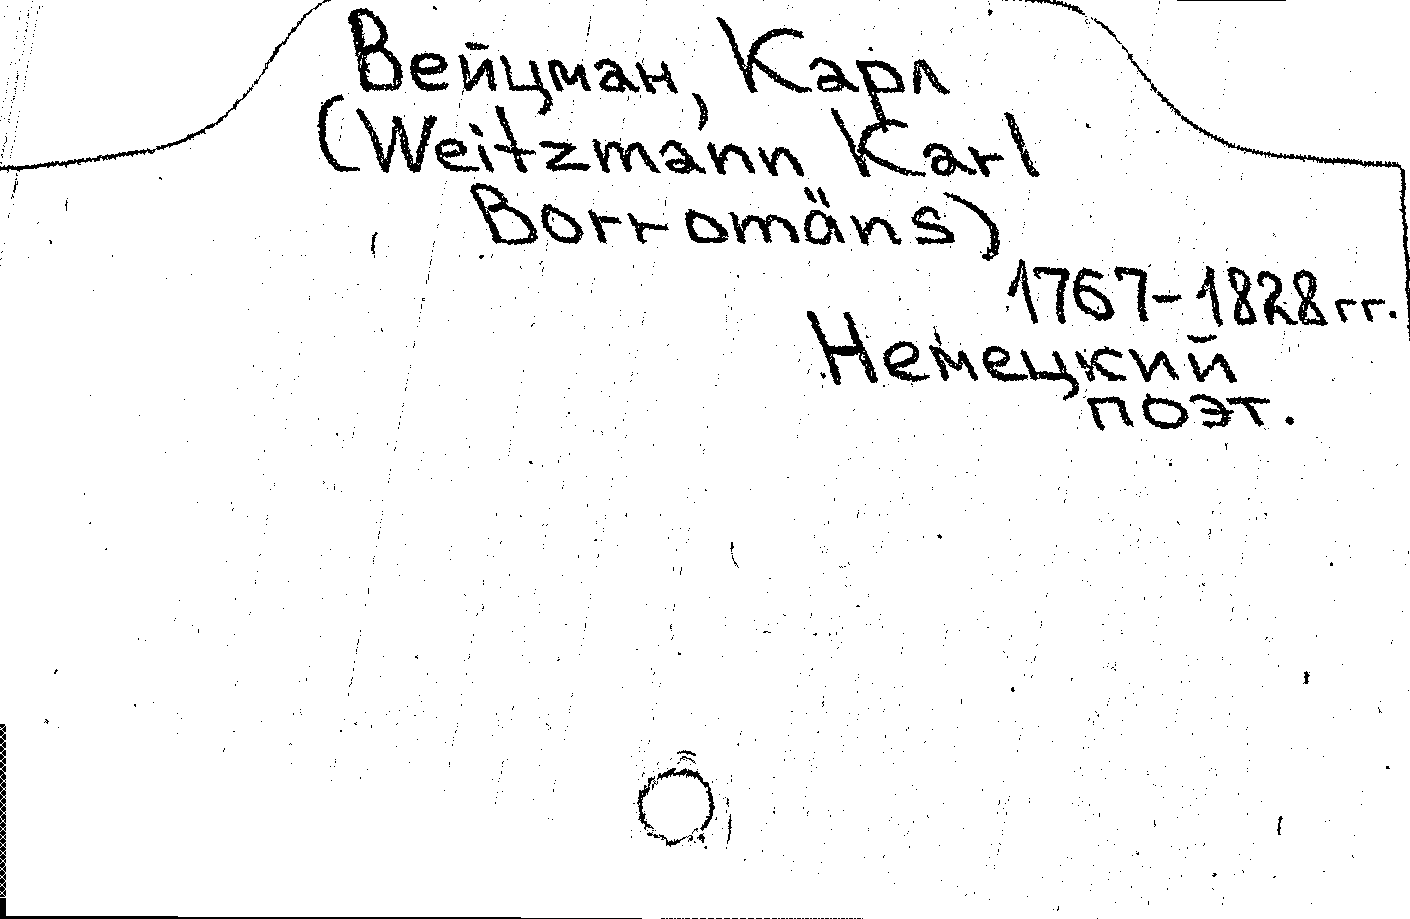 Вейцман, Карл
(Weitzmann Karl
Borromäns)
1767-1828 гг.
Немецкий
поэт.